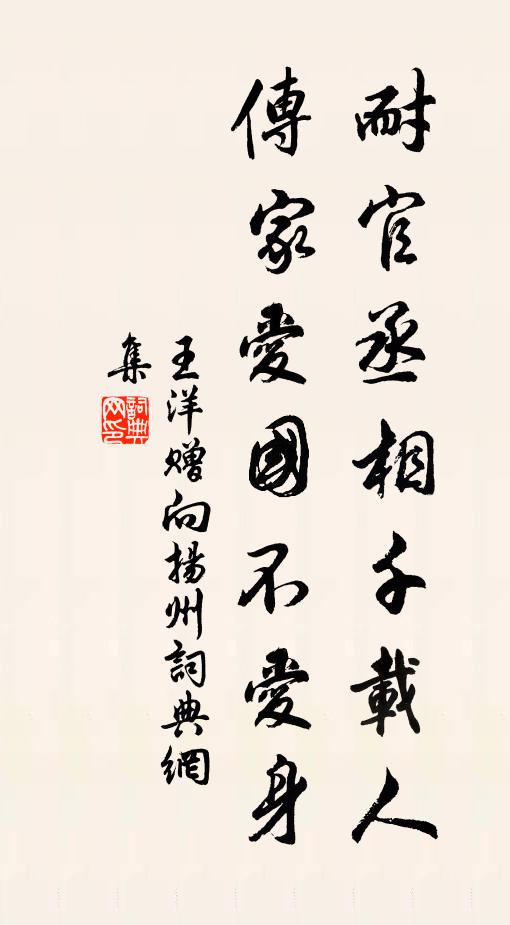 耐官丞相千載人
傳家愛國不愛身
王洋贈向揚州詞典網
集
詞典網印